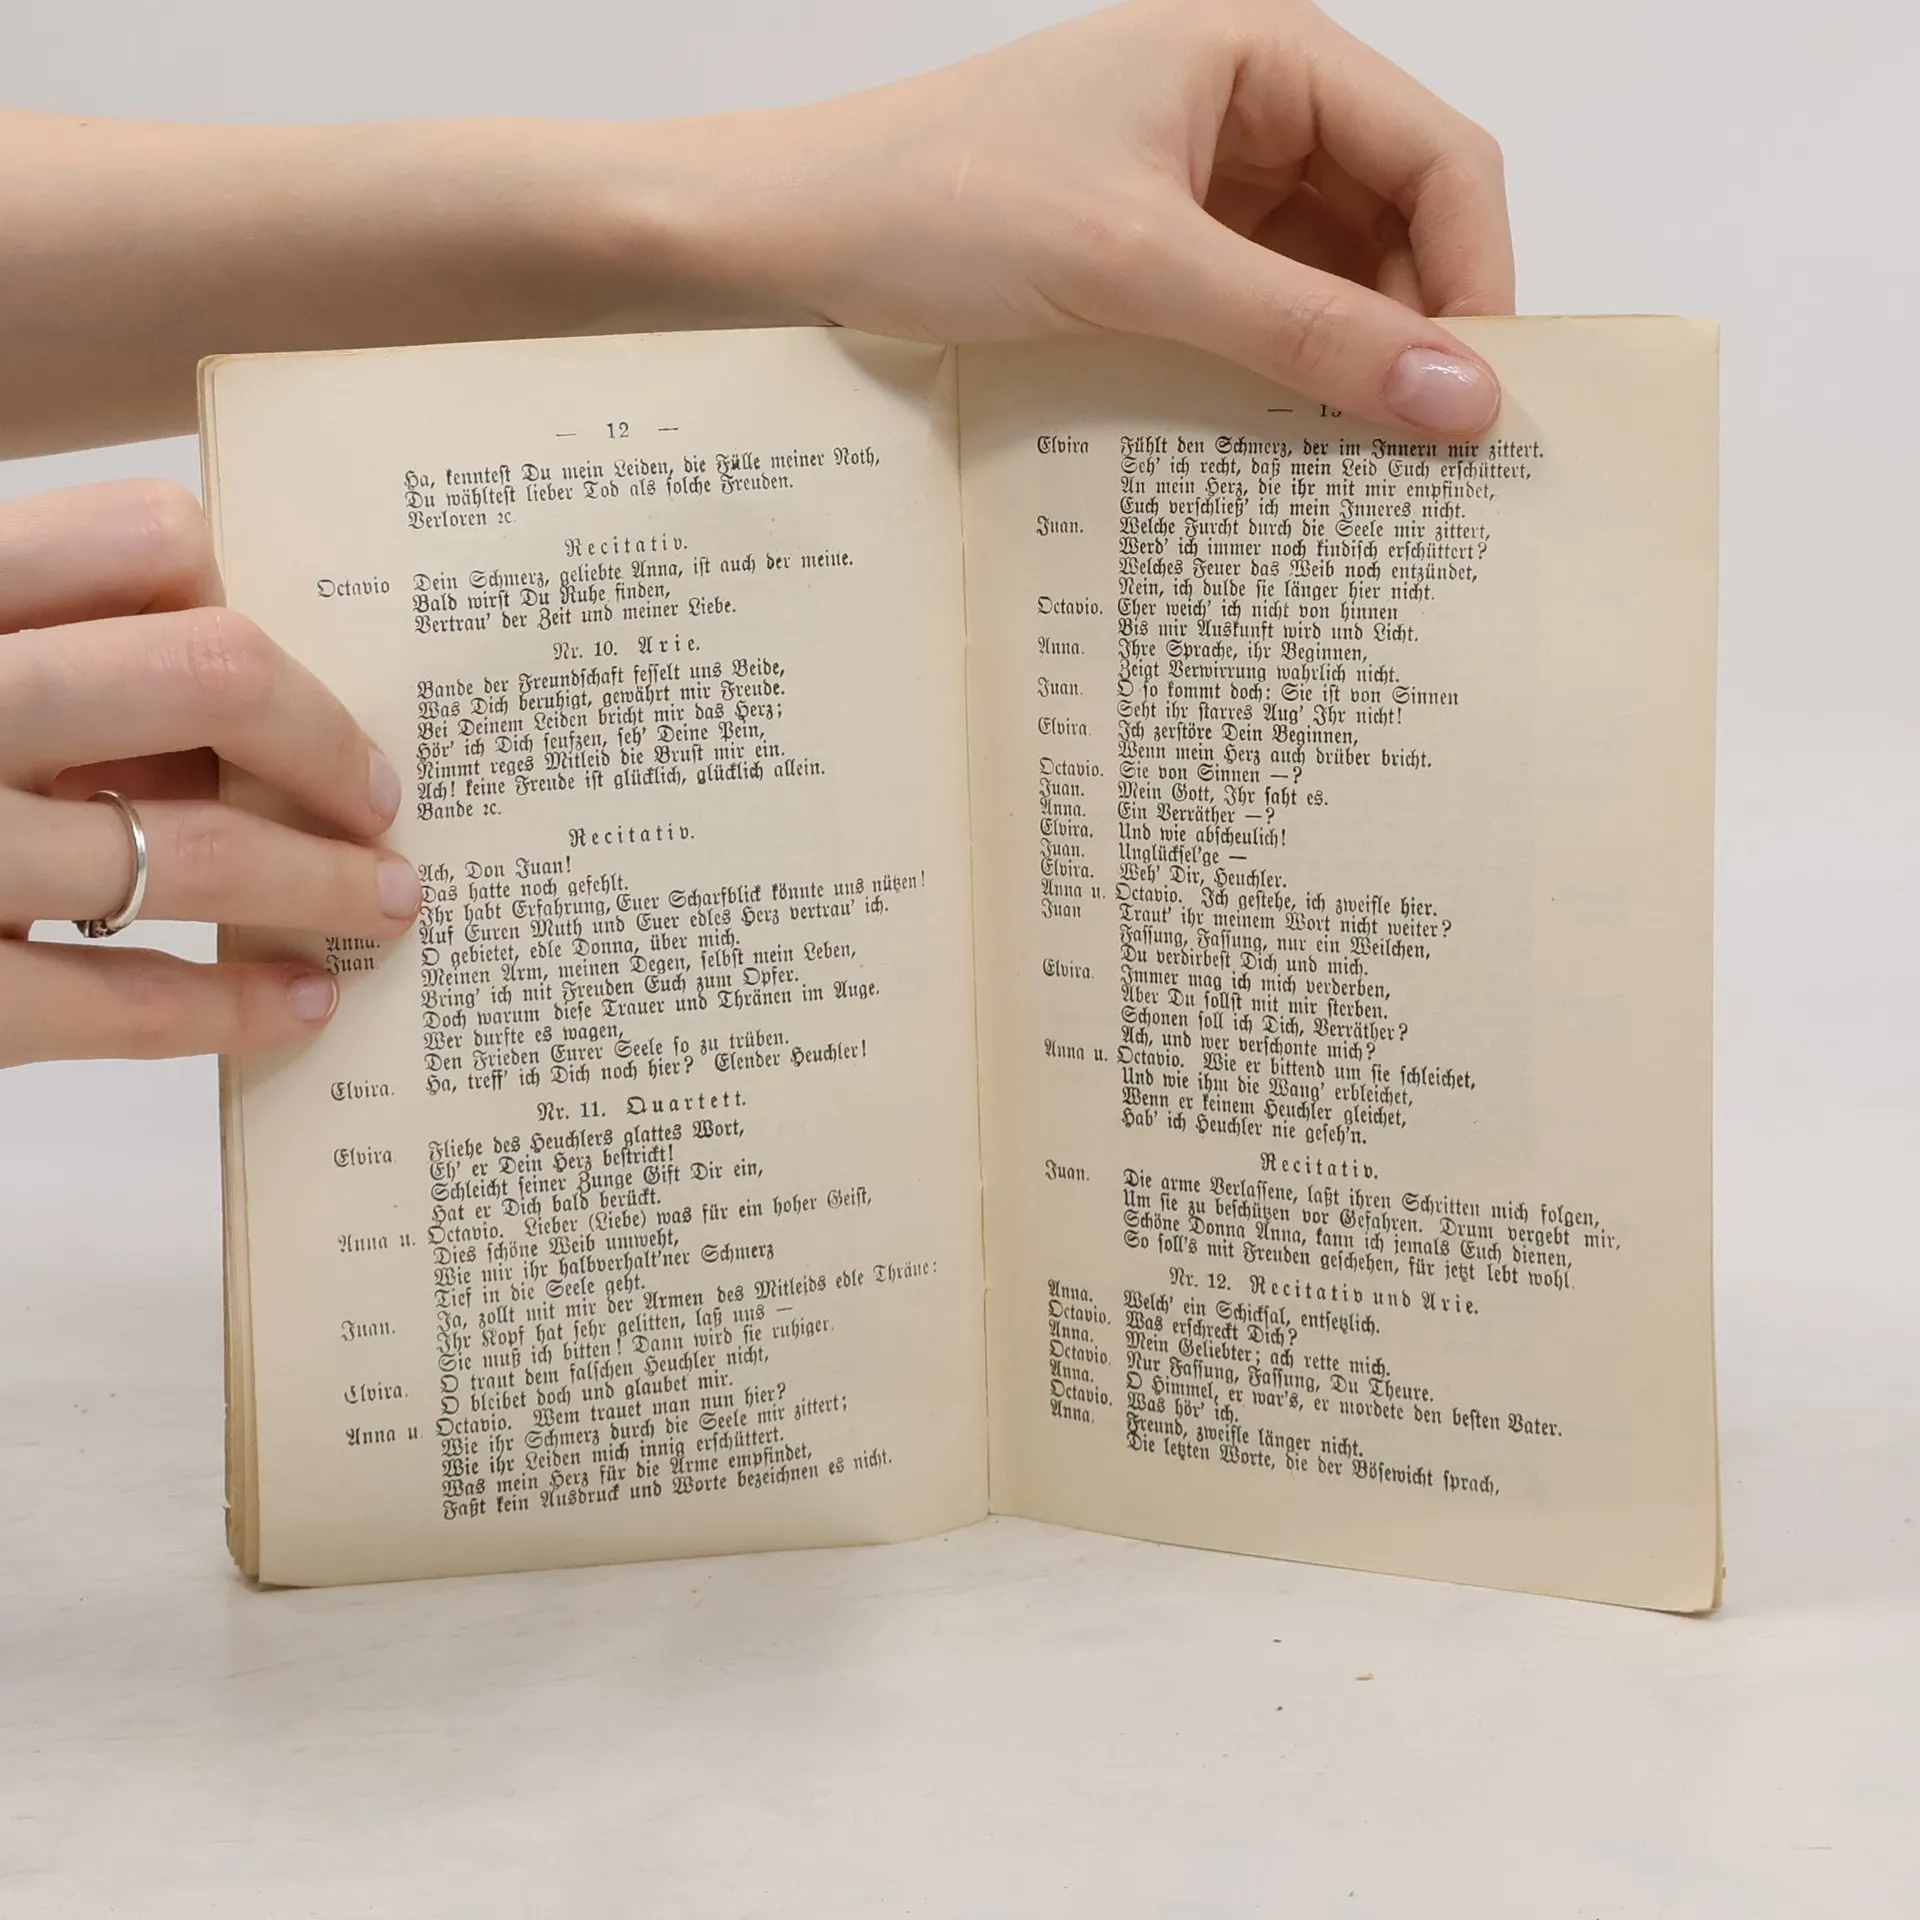 — 12 —
Ha, kenntest Du mein Leiden, die Fülle meiner Noth,
Du wähltest lieber Tod als solche Freuden.
Verloren ꝛc.
Recitativ.
Octavio Dein Schmerz, geliebte Anna, ist auch der meine.
Bald wirst Du Ruhe finden,
Vertrau' der Zeit und meiner Liebe.
Nr. 10. Arie.
Bande der Freundschaft fesselt uns Beide,
Was Dich beruhigt, gewährt mir Freude.
Bei Deinem Leiden bricht mir das Herz;
Hör' ich Dich seufzen, seh' Deine Pein,
Nimmt reges Mitleid die Brust mir ein.
Ach! keine Freude ist glücklich, glücklich allein.
Bande ꝛc.
Recitativ.
Ach, Don Juan!
Das hatte noch gefehlt.
Ihr habt Erfahrung, Euer Scharfblick könnte uns nützen!
Auf Euren Muth und Euer edles Herz vertrau' ich.
Anna. O gebietet, edle Donna, über mich.
Juan. Meinen Arm, meinen Degen, selbst mein Leben,
Bring' ich mit Freuden Euch zum Opfer.
Doch warum diese Trauer und Thränen im Auge.
Wer durfte es wagen,
Den Frieden Eurer Seele so zu trüben.
Elvira. Ha, treff' ich Dich noch hier? Elender Heuchler!
Nr. 11. Quartett.
Elvira. Fliehe des Heuchlers glattes Wort,
Eh' er Dein Herz bestrickt!
Schleicht seiner Zunge Gift Dir ein,
Hat er Dich bald berückt.
Anna u. Octavio. Lieber (Liebe) was für ein hoher Geist,
Dies schöne Weib umweht,
Wie mir ihr halbverhalt'ner Schmerz
Tief in die Seele geht.
Juan. Ja, zollt mit mir der Armen des Mitleids edle Thräne:
Ihr Kopf hat sehr gelitten, laß uns —
Sie muß ich bitten! Dann wird sie ruhiger.
Elvira. O traut dem falschen Heuchler nicht,
O bleibet doch und glaubet mir.
Anna u. Octavio. Wem trauet man nun hier?
Wie ihr Schmerz durch die Seele mir zittert;
Wie ihr Leiden mich innig erschüttert.
Was mein Herz für die Arme empfindet,
Faßt kein Ausdruck und Worte bezeichnen es nicht.
Elvira Fühlt den Schmerz, der im Innern mir zittert.
Seh' ich recht, daß mein Leid Euch erschüttert,
An mein Herz, die ihr mit mir empfindet,
Euch verschließ' ich mein Inneres nicht.
Juan. Welche Furcht durch die Seele mir zittert,
Werd' ich immer noch kindisch erschüttert?
Welches Feuer das Weib noch entzündet,
Nein, ich dulde sie länger hier nicht.
Octavio. Eher weich' ich nicht von hinnen
Bis mir Auskunft wird und Licht.
Anna. Ihre Sprache, ihr Beginnen,
Zeigt Verwirrung wahrlich nicht.
Juan. O so kommt doch: Sie ist von Sinnen
Seht ihr starres Aug' Ihr nicht!
Elvira. Ich zerstöre Dein Beginnen,
Wenn mein Herz auch drüber bricht.
Octavio. Sie von Sinnen —?
Juan. Mein Gott, Ihr saht es.
Anna. Ein Verräther —?
Elvira. Und wie abscheulich!
Juan. Unglücksel'ge —
Elvira. Weh' Dir, Heuchler.
Anna u. Octavio. Ich gestehe, ich zweifle hier.
Juan Traut' ihr meinem Wort nicht weiter?
Fassung, Fassung, nur ein Weilchen,
Du verdirbest Dich und mich.
Elvira. Immer mag ich mich verderben,
Aber Du sollst mit mir sterben.
Schonen soll ich Dich, Verräther?
Ach, und wer verschonte mich?
Anna u. Octavio. Wie er bittend um sie schleichet,
Und wie ihm die Wang' erbleichet,
Wenn er keinem Heuchler gleichet,
Hab' ich Heuchler nie geseh'n.
Recitativ.
Juan. Die arme Verlassene, laßt ihren Schritten mich folgen,
Um sie zu beschützen vor Gefahren. Drum vergebt mir,
Schöne Donna Anna, kann ich jemals Euch dienen,
So soll's mit Freuden geschehen, für jetzt lebt wohl.
Nr. 12. Recitativ und Arie.
Anna. Welch' ein Schicksal, entsetzlich.
Octavio. Was erschreckt Dich?
Anna. Mein Geliebter; ach rette mich.
Octavio. Nur Fassung, Fassung, Du Theure.
Anna. O Himmel, er war's, er mordete den besten Vater.
Octavio. Was hör' ich.
Anna. Freund, zweifle länger nicht.
Die letzten Worte, die der Bösewicht sprach,